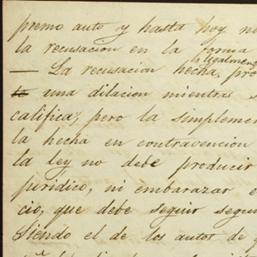 premo auto y hasta hoy no
la recusación en la forma
legalmen
— La recusación hecha, pro
una dilación mientras s
califica; pero la simplemen
la hecha en contravención
la ley no debe producir
jurídico, ni embarazar e
cio, que debe seguir segun
siendo el de los autor de q